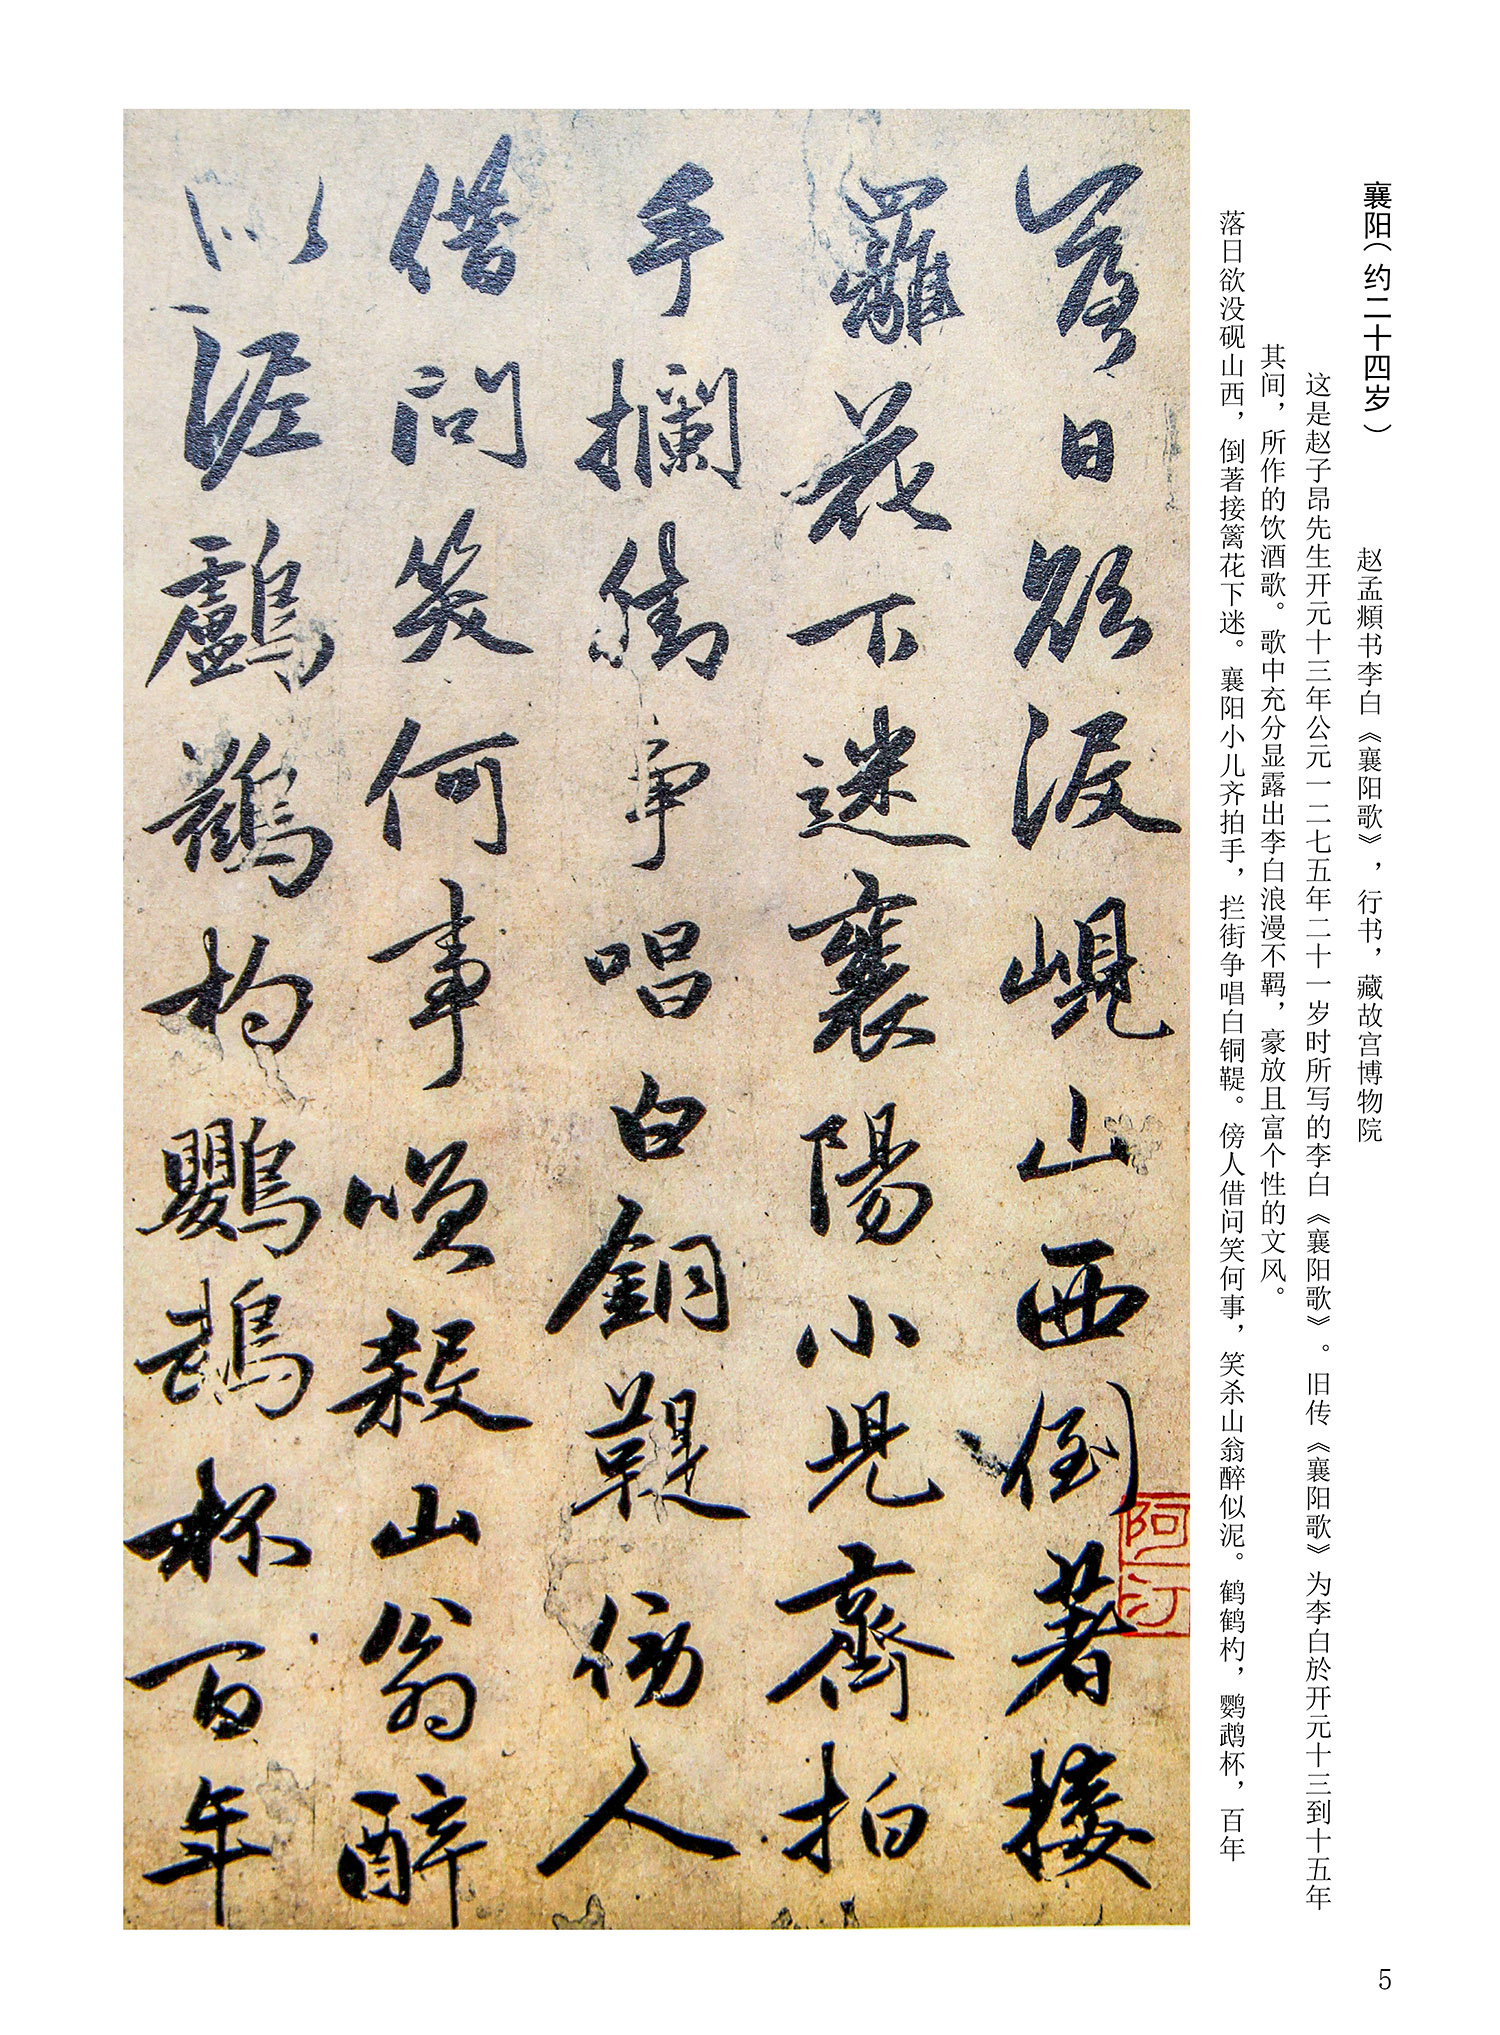 襄阳（约二十四岁）
赵孟頫书李白《襄阳歌》，行书，藏故宫博物院
这是赵子昂先生开元十三年公元一二七五年二十一岁时所写的李白《襄阳歌》。旧传《襄阳歌》为李白於开元十三到十五年
其间，所作的饮酒歌。歌中充分显露出李白浪漫不羁，豪放且富个性的文风。
落日欲没砚山西，倒著接篱花下迷。襄阳小儿齐拍手，拦街争唱白铜鞮。傍人借问笑何事，笑杀山翁醉似泥。鹤鹤杓，鹦鹉杯，百年
落日欲没峴山西倒著接
羅花下迷襄陽小児齊拍
手攔街争唱白銅鞮傍人
借问笑何事噗殺山翁醉
似泥鸕鷀杓鸚鵡杯百年
阿
汀
5